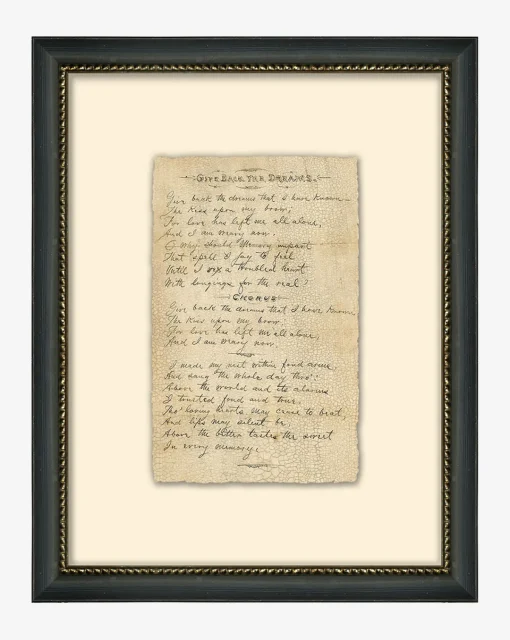 Give Back The Dreams.
Give back the dreams that I have known
The kiss upon my brow;
For love has left me all alone,
And I am weary now.
O why should Memory impart
That spell I fay to feel
Until I a troubled
With longings for the real?
Chorus
Give back the dreams that I have known
The kiss upon my brow
For love has left me all alone,
And I am weary now.
I made my nest within fond arms
And sang the whole day thro'
Above the world and its alarms
I trusted fond and true.
Tho' loving hearts may cease to beat,
And lips may silent be
Above the bitter tastes the sweet
In every memory.